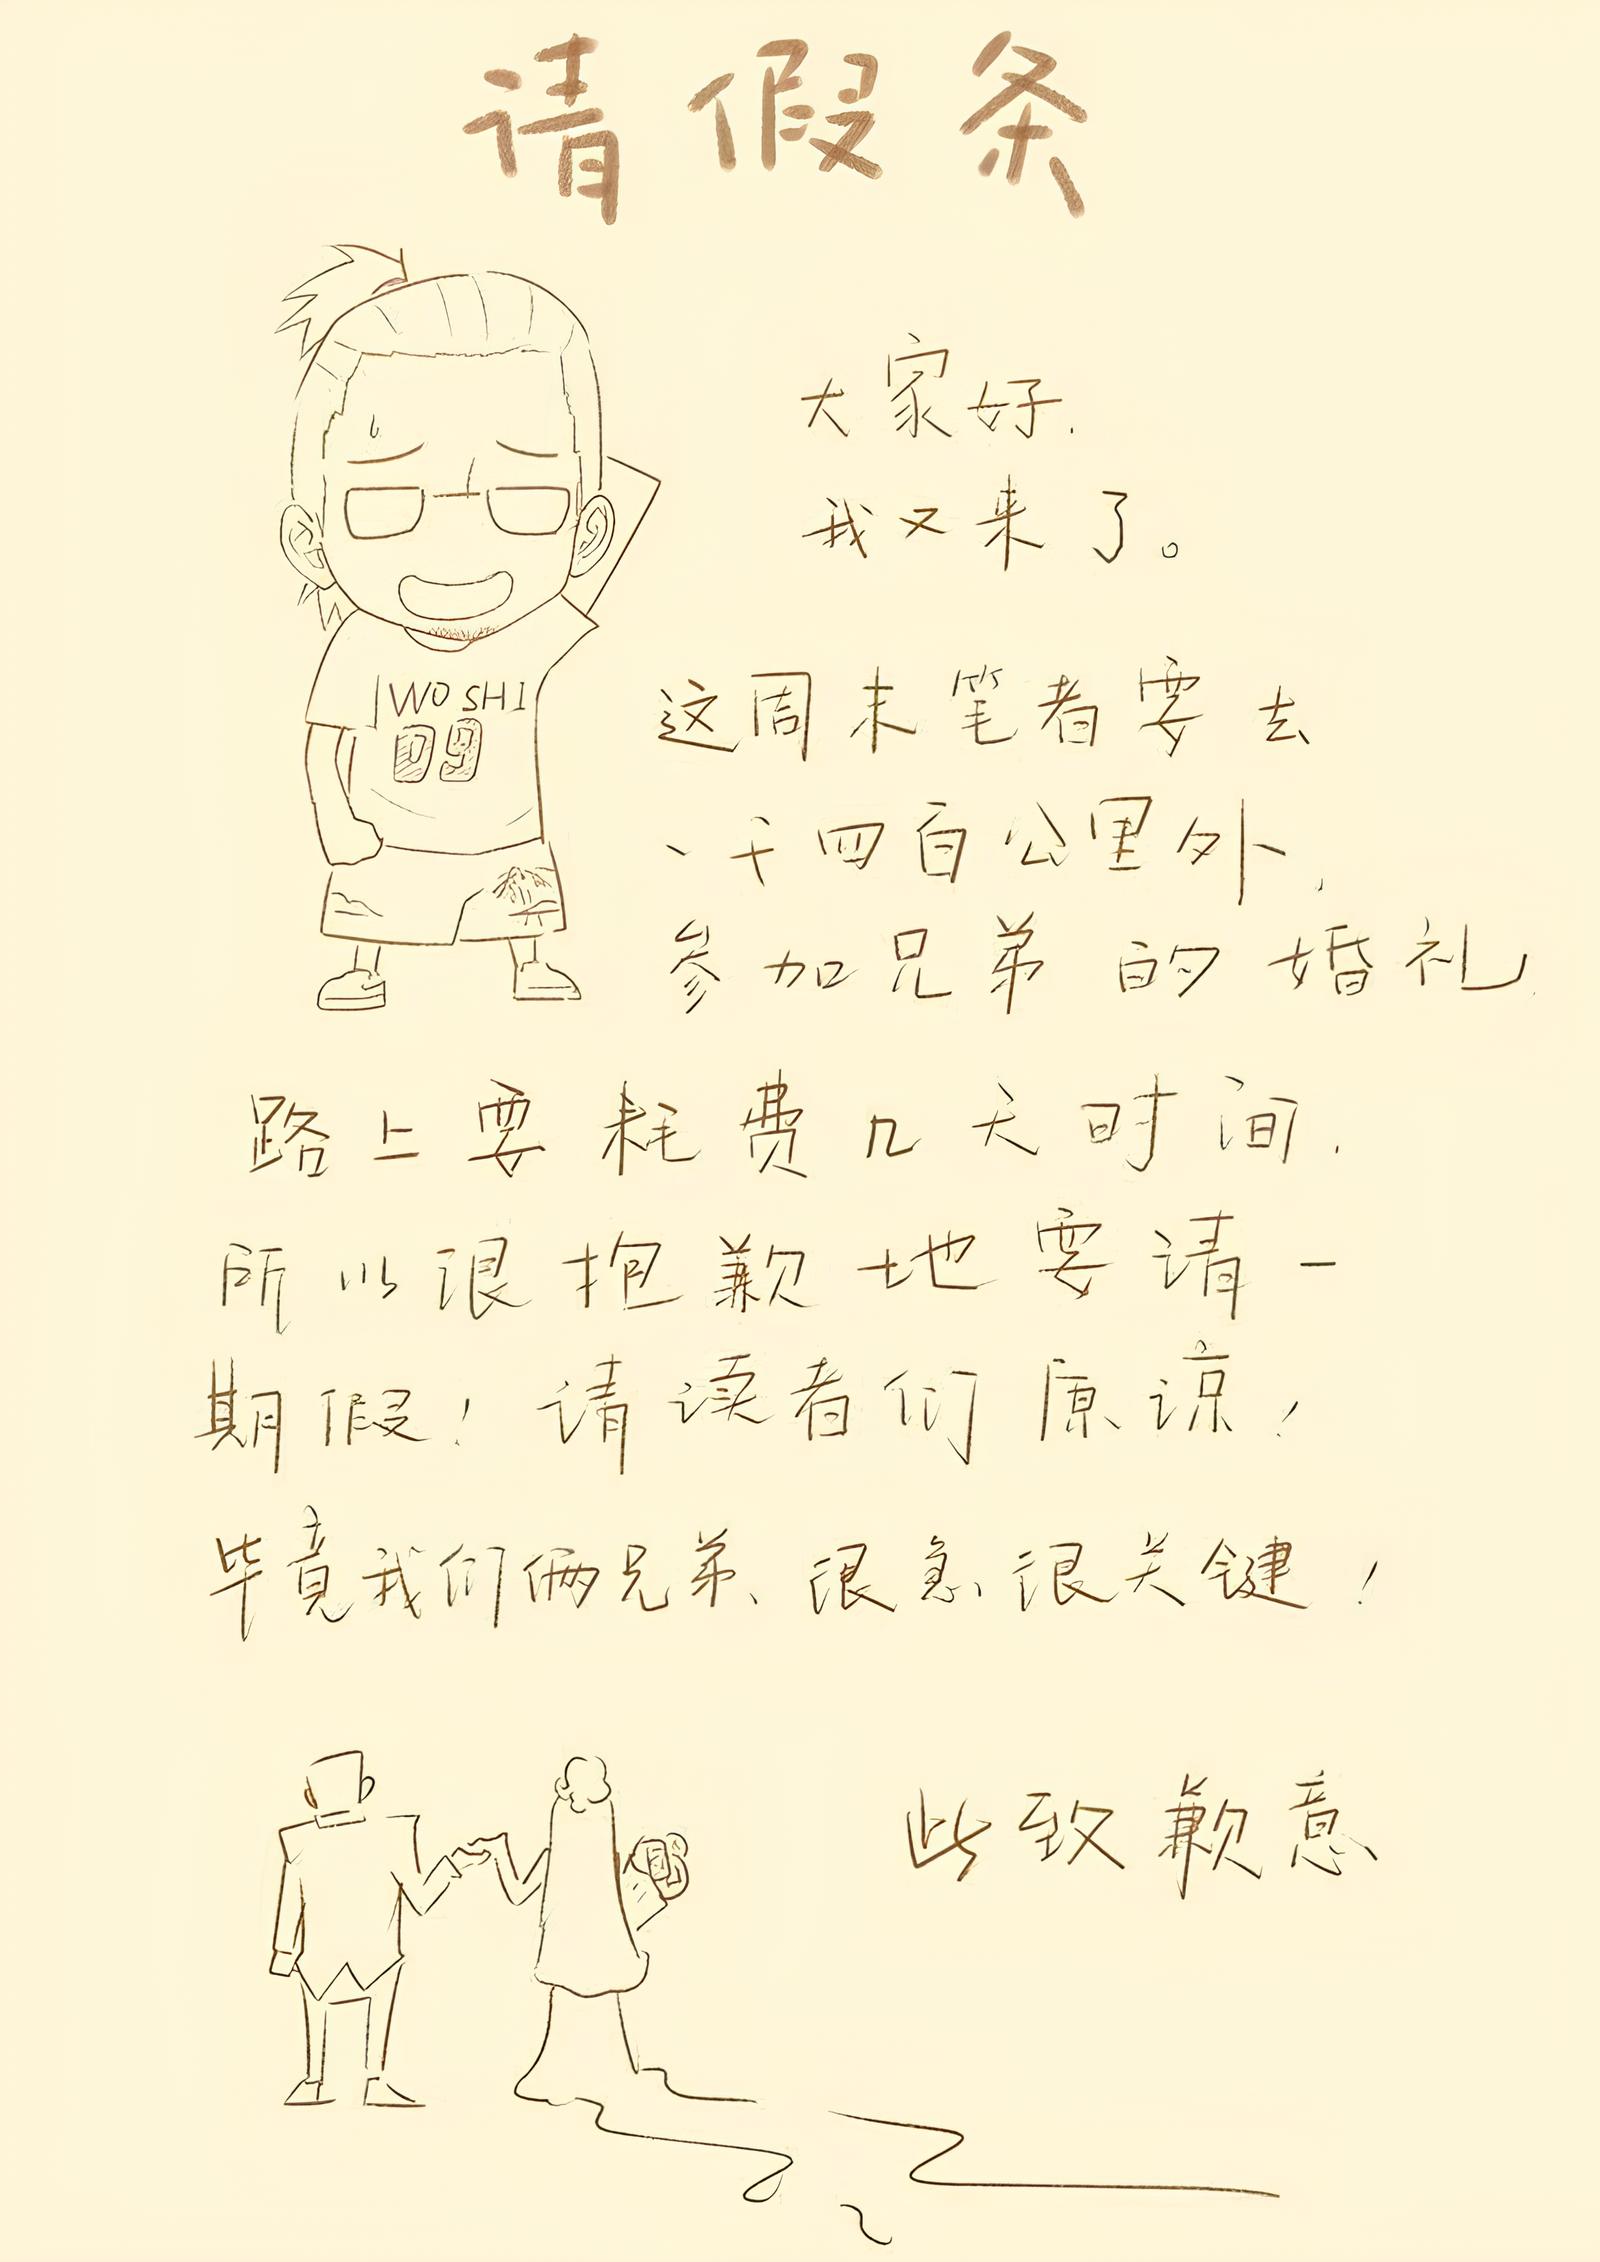 请假条
大家好.
我又来了。
WOSHI
09
这周末笔者要去
一千四百公里外,
参加兄弟的婚礼.
路上要耗费几天时间.
所以很抱歉地要请一
期假!请读者们原谅!
毕竟我们俩兄弟、很急很关键!
此致歉意